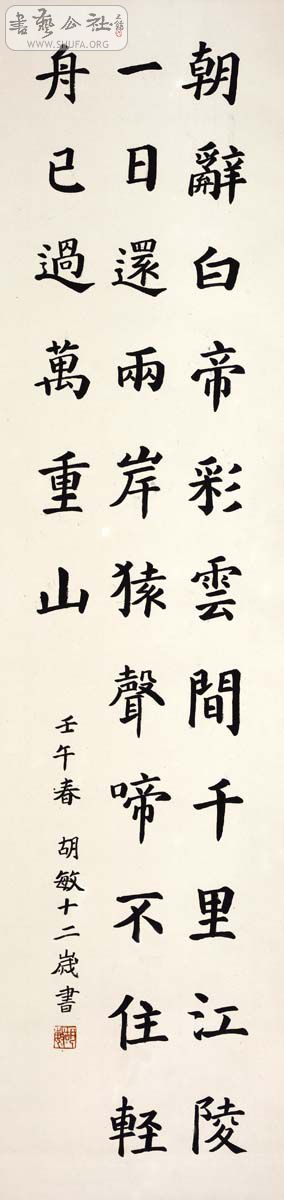 朝辭白帝彩雲間千里江陵
一日還兩岸猿聲啼不住軽
舟已過萬重山
壬午春 胡敏十二歲書
書藝公社
WWW.SHUFA.ORG